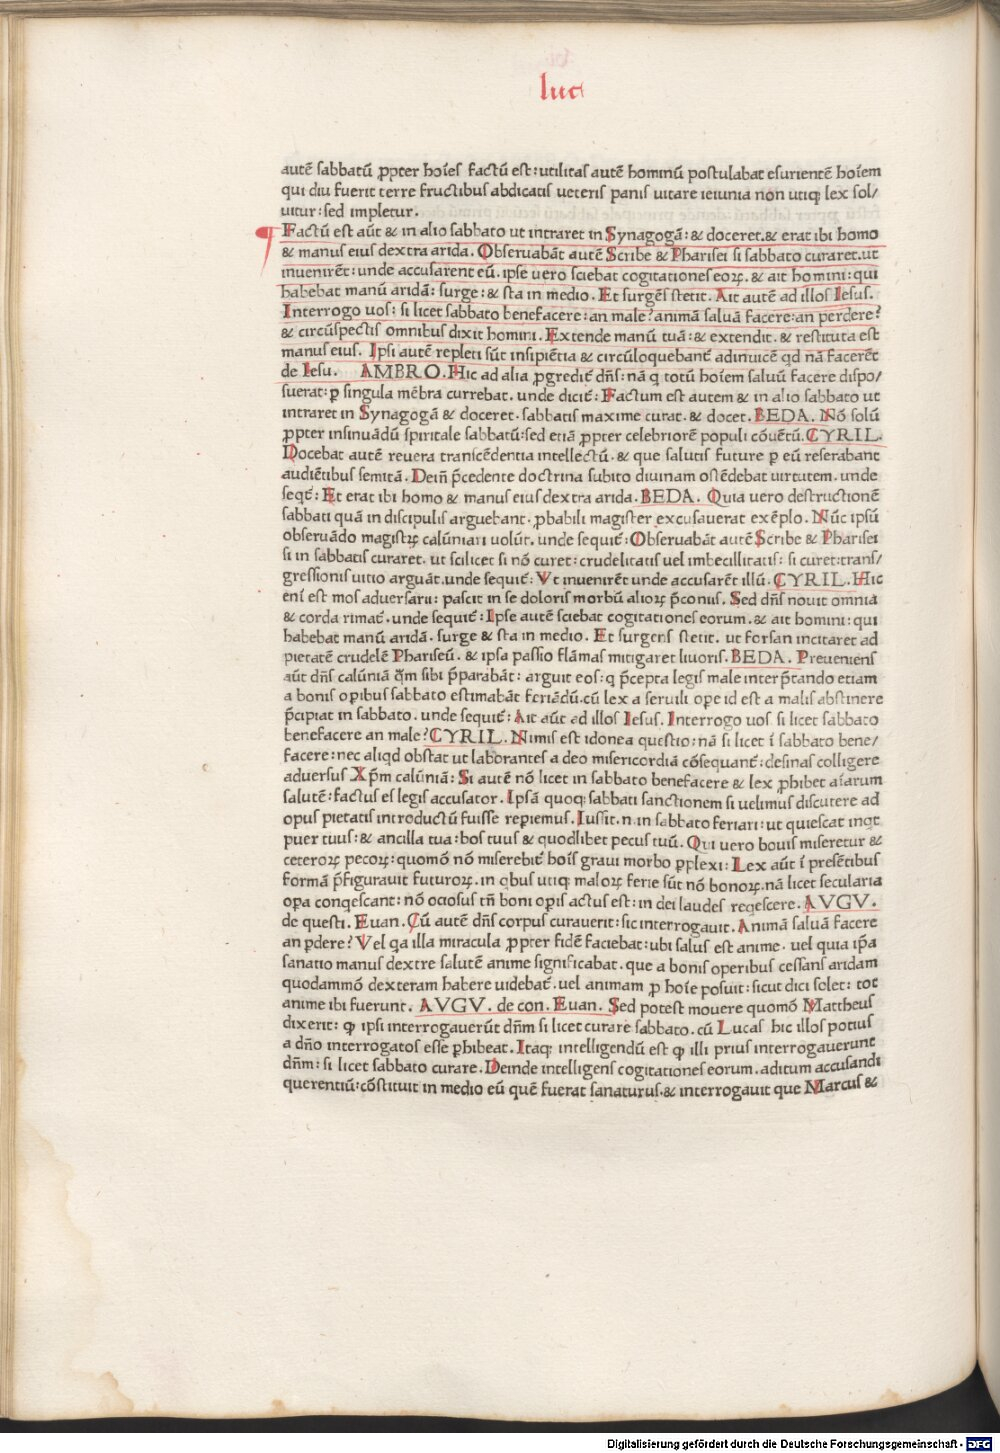 luc
autē sabbatū ꝓpter hoīes factū est: utilitas autē hominū postulabat esurientē hoīem
qui diu fuerit terre fructibus abdicatis ueteris panis uitare ieiunia non utiqꝫ lex sol/
uitur: sed impletur.
Factū est aūt & in alio sabbato ut intraret in Synagogā: & doceret. & erat ibi homo
& manus eius dextra arida. Obseruabāt autē Scribe & Pharisei si sabbato curaret. ut
inuenirēt: unde accusarent eū. ipse uero sciebat cogitationes eoꝝ. & ait homini: qui
habebat manū aridā: surge: & sta in medio. Et surgēs stetit. Ait autē ad illos Iesus.
Interrogo uos: si licet sabbato benefacere: an male? animā saluā facere: an perdere?
& circūspectis omnibus dixit homini. Extende manū tuā: & extendit. & restituta est
manus eius. Ipsi autē repleti sūt insipiētia & circūloquebant̄ adinuicē qd nā facerēt
de Iesu. AMBRO. Hic ad alia ꝓgredit̄ dn̄s: nā q totū hoīem saluū facere dispo/
suerat: ꝑ singula mēbra currebat. unde dicit̄: Factum est autem & in alio sabbato ut
intraret in Synagogā & doceret. sabbatis maxime curat. & docet. BEDA. Nō solū
ꝓpter insinuādū spiritale sabbatū: sed etiā ꝓpter celebriorē populi cōuētū. CYRIL.
Docebat autē reuera transcēdentia intellectū. & que salutis future ꝑ eū reserabant
audiētibus semitā. Dein̄ p̄cedente doctrina subito diuinam ostēdebat uirtutem. unde
seqt̄: Et erat ibi homo & manus eius dextra arida. BEDA. Quia uero destructionē
sabbati quā in discipulis arguebant. ꝓbabili magister excusauerat exēplo. Nūc ipsū
obseruādo magistꝝ calūniari uolūt. unde sequit̄: Obseruabāt autē Scribe & Pharisei
si in sabbatis curaret. ut scilicet si nō curet: crudelitatis uel imbecillitatis: si curet: trans/
gressionis uitio arguāt. unde sequit̄: Vt inuenirēt unde accusarēt illū. CYRIL. Hic
eni est mos aduersarii: pascit in se doloris morbū alioꝝ p̄conus. Sed dn̄s nouit omnia
& corda rimat̄. unde sequit̄: Ipse autē sciebat cogitationes eorum. & ait homini: qui
habebat manū aridā. surge & sta in medio. Et surgens stetit. ut forsan incitaret ad
pietatē crudelē Phariseū. & ipsa passio flāmas mitigaret liuoris. BEDA. Preueniens
aūt dn̄s calūniā q̄m sibi p̄parabāt: arguit eos: q p̄cepta legis male interp̄tando etiam
a bonis oꝑibus sabbato estimabāt feriādū. cū lex a seruili oꝑe id est a malis abstinere
p̄cipiat in sabbato. unde sequit̄: Ait aūt ad illos Iesus. Interrogo uos si licet sabbato
benefacere an male? CYRIL. Nimis est idonea questio: nā si licet ī sabbato bene/
facere: nec aliqd obstat ut laborantes a deo misericordiā cōsequant̄: desinas colligere
aduersus Xp̄m calūniā: Si autē nō licet in sabbato benefacere & lex ꝓhibet aīarum
salutē: factus es legis accusator. Ipsā quoqꝫ sabbati sanctionem si uelimus discutere ad
opus pietatis introductū fuisse reꝑiemus. Iussit. n. in sabbato feriari: ut quiescat inqt
puer tuus: & ancilla tua: bos tuus & quodlibet pecus tuū. Qui uero bouis miseretur &
ceteroꝝ pecoꝝ: quomō nō miserebit̄ hoīs graui morbo ꝑplexi: Lex aūt ī presētibus
formā p̄figurauit futuroꝝ. in qbus utiqꝫ maloꝝ ferie sūt nō bonoꝝ. nā licet secularia
oꝑa conqescant: nō ociosus tn̄ boni oꝑis actus est: in dei laudes reqescere. AVGV.
de questi. Euan. Cū autē dn̄s corpus curauerit: sic interrogauit. Animā saluā facere
an ꝑdere? Vel qa illa miracula ꝓpter fidē faciebat: ubi salus est anime. uel quia ip̄a
sanatio manus dextre salutē anime significabat. que a bonis operibus cessans aridam
quodammō dexteram habere uidebat̄. uel animam ꝓ hoīe posuit: sicut dici solet: tot
anime ibi fuerunt. AVGV. de con. Euan. Sed potest mouere quomō Mattheus
dixerit: ꝙ ipsi interrogauerūt dn̄m si licet curare sabbato. cū Lucas hic illos potius
a dn̄o interrogatos esse ꝑhibeat. Itaqꝫ intelligendū est ꝙ illi prius interrogauerunt
dn̄m: si licet sabbato curare. Deinde intelligens cogitationes eorum. aditum accusandi
querentiū: cōstituit in medio eū quē fuerat sanaturus. & interrogauit que Marcus &
Digitalisierung gefördert durch die Deutsche Forschungsgemeinschaft - DFG